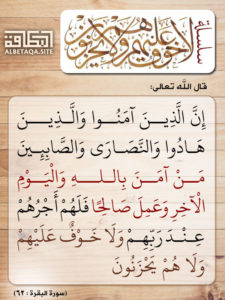 سلسلة
لا خوف عليهم ولا هم يحزنون
البطاقة
ALBETAQA.SITE
قال الله تعالى:
إِنَّ الَّذِينَ آمَنُوا وَالَّذِينَ
هَادُوا وَالنَّصَارَى وَالصَّابِئِينَ
مَنْ آمَنَ بِاللهِ وَالْيَوْمِ
الْآخِرِ وَعَمِلَ صَالِحًا فَلَهُمْ أَجْرُهُمْ
عِنْدَ رَبِّهِمْ وَلَا خَوْفٌ عَلَيْهِمْ
وَلَا هُمْ يَحْزَنُونَ
(سورة البقرة : ٦٢)